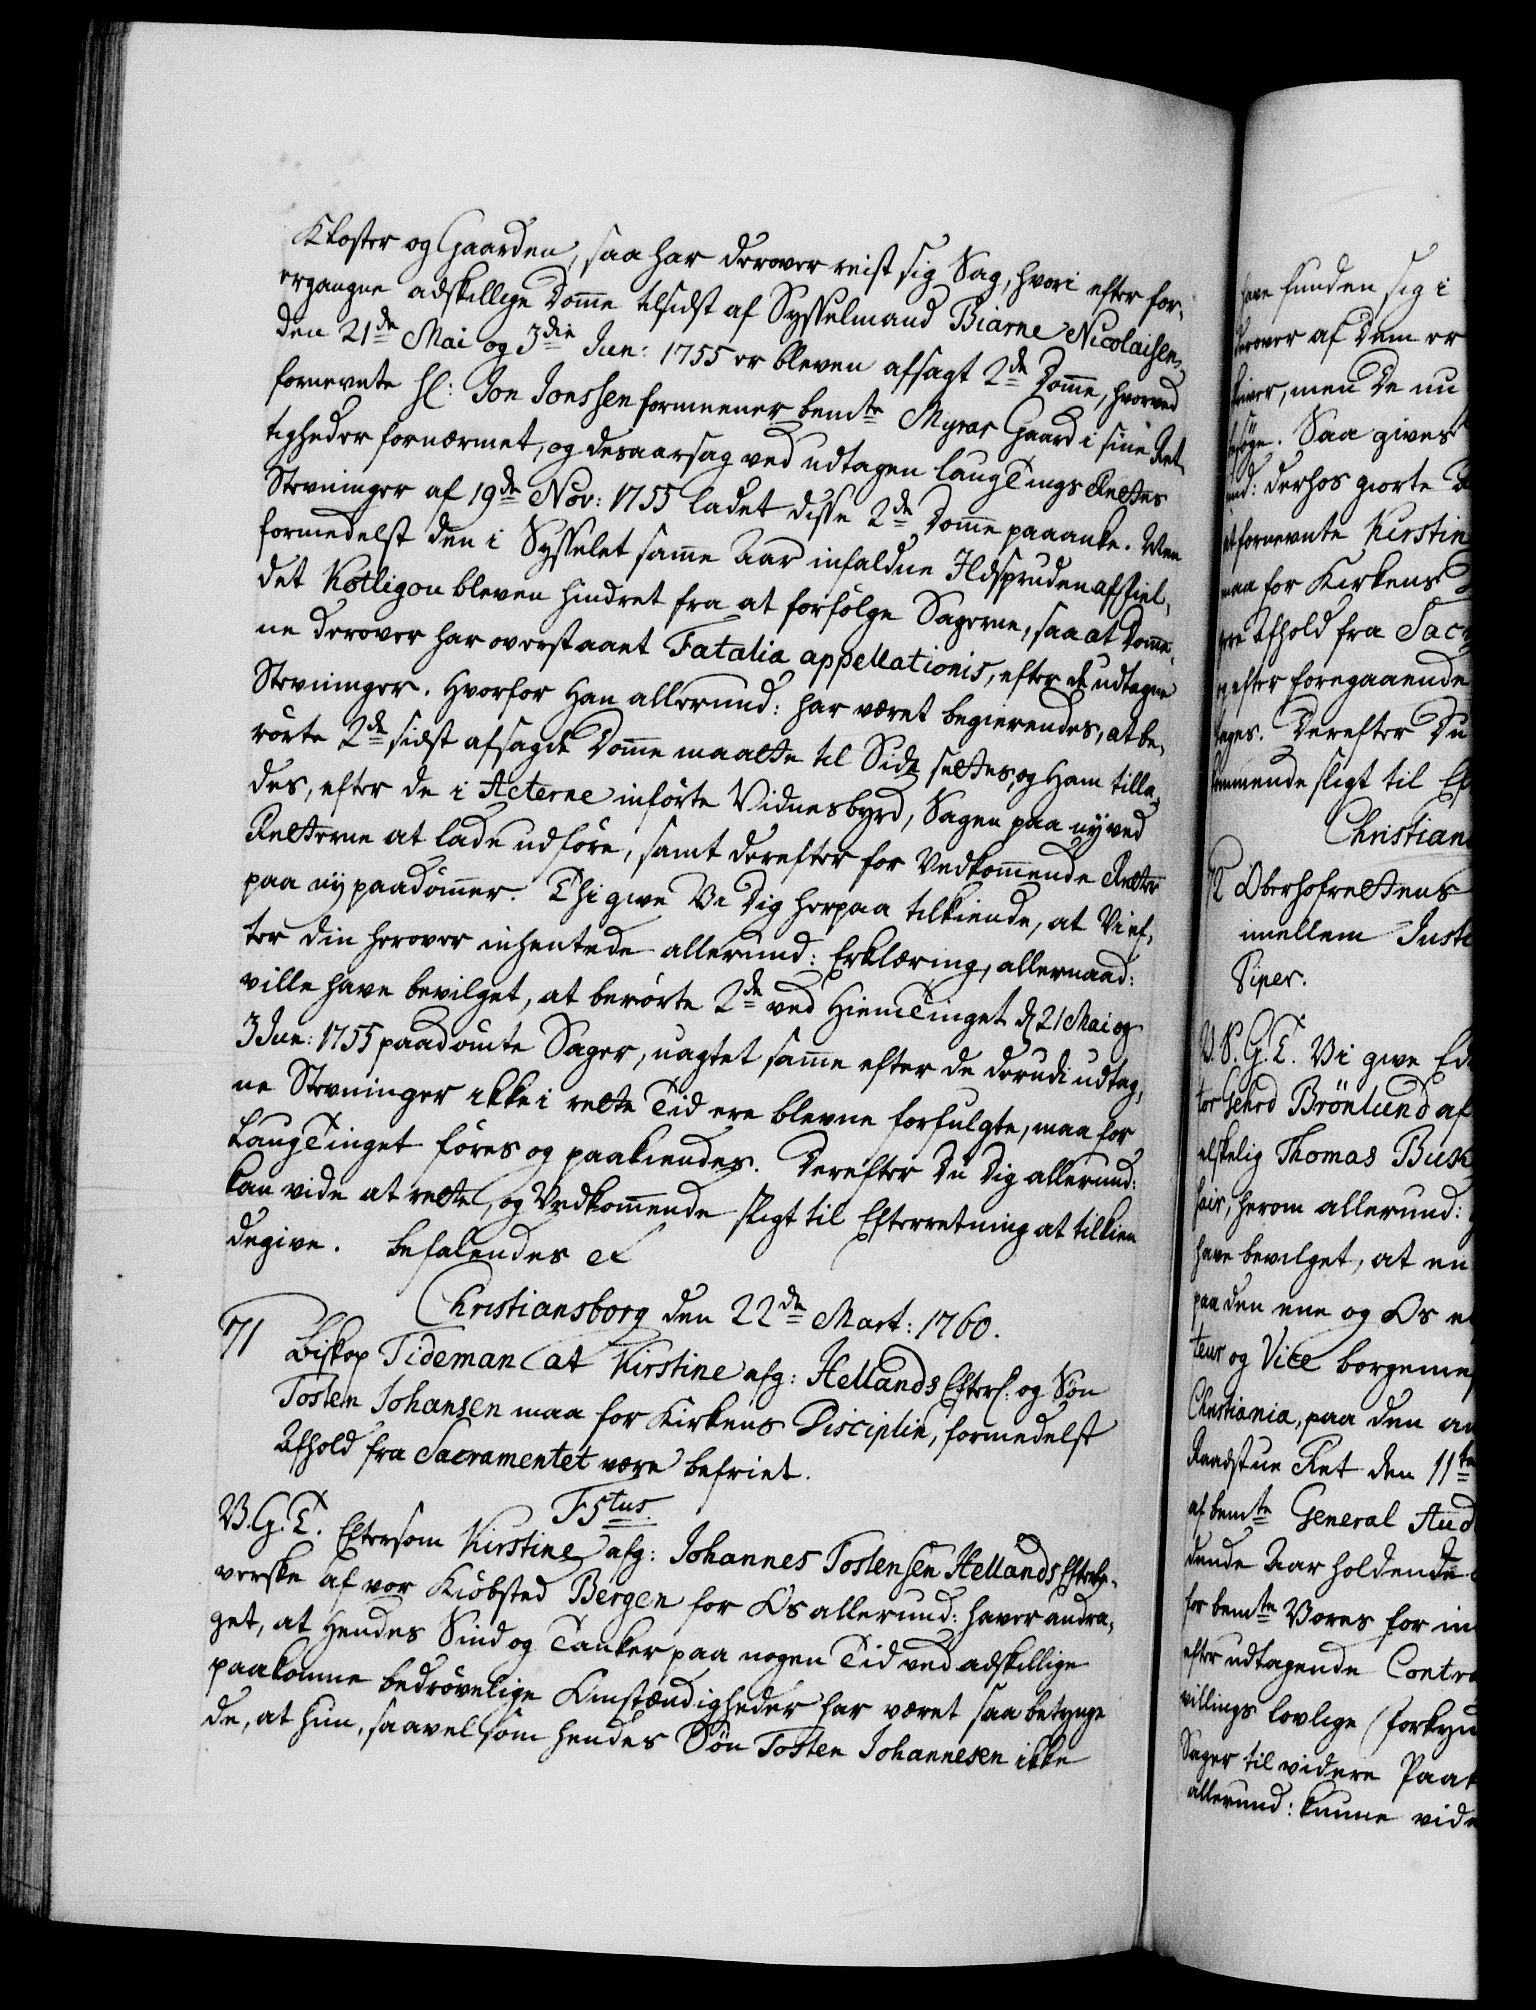 Kloster og Gaarden, saa har derover reist sig Sag, hvori efter for,
ergangne adskillige Domme tilsidst af Sysselmand Biarne Nicolaisen,
den 21de Mai og 3die Jun: 1755 er bleven afsagt 2de Domme, hvorved
fornevnte Hl: Jon Jonssen formeener bemte Myrar Gaard i sine Ret,
tigheder fornærmet, og desaarsag ved udtagen LaugTings Rettes
Stevninger af 19de Nov: 1755 ladet disse 2de Domme paaanke. Men
formedelst den i Sysselet samme Aar infaldne Ildspruden af Fiel,
det Kotligou bleven hindret fra at forfølge Sagerne, saa at Domme,
ne derover har overstaaet Fatalia appellationis, efter de udtagne
Stevninger. Hvorfor Han allerund: har været begierendes, at be,
rørte 2de sidst afsagde Domme maatte til Side settes, og Ham tilla,
des, efter de i Acterne inførte Vidnesbyrd, Sagen paa nÿ ved
Retterne at lade udføre, samt derefter for Vedkommende Retter
paa nÿ paadømmer. Thi give Vi Dig herpaa tilkiende, at Vi ef,
ter din herover inhentede allerund: Erklæring, allernaad:
ville have bevilget, at berørte 2de ved HiemTinget d 21 Mai og
3 Jun: 1755 paadømte Sager, uagtet samme efter de derudi udtag,
ne Stevninger ikke i rette Tid ere blevne forfulgte, maa for
LaugTinget føres og paakiendes. Derefter Du Dig allerund:
kan vide at rette, og Vedkommende sligt til Efterretning at tilkien
degive. Befalendes etc
Christiansborg den 22de Mart: 1760.
71 Biskop Tideman at Kirstine afg: Hellands Efterl: og Søn
Tosten Johansen maa for Kirkens Disciplin, formedelst
Afhold fra Sacramentet være befriet.
F5tus.
V. G. T. Eftersom Kirstine afg: Johannes Tostensen Hellands Efterle,
verske af vor Kiøbsted Bergen for Os allerund: haver andra,
get, at Hendes Sind og Tanker paa nogen Tid ved adskillige
paakomne bedrøvelige Omstændigheder har været saa betynge
de, at hun, saavelsom hendes Søn Tosten Johannesen ikke
have funden sig i
derover af Dem er
men De nu
Saa gives
derhos giorte
at fornevnte Kirstin
maa for Kirkens
Afhold fra Sac
efter foregaaende
tages. Derefter Du
kommende sligt til Ef
Christian
72 Oberhofrettens
imellem Juste
Piper.
V. S. G. T. Vi give Ed
tor Gehrd Brönlund af
elskelig Thomas Busk
herom allerund:
have bevilget, at en
paa den ene og Os e
teur og Vice borgeme
Christiania, paa den an
Raadstue Ret den 11te
af bemte General Aud
dende Aar holdende
for bemte Vores for in
efter udtagende Contra
villings lovlige forkyn
Sager til videre Paak
allerund: kunne vide